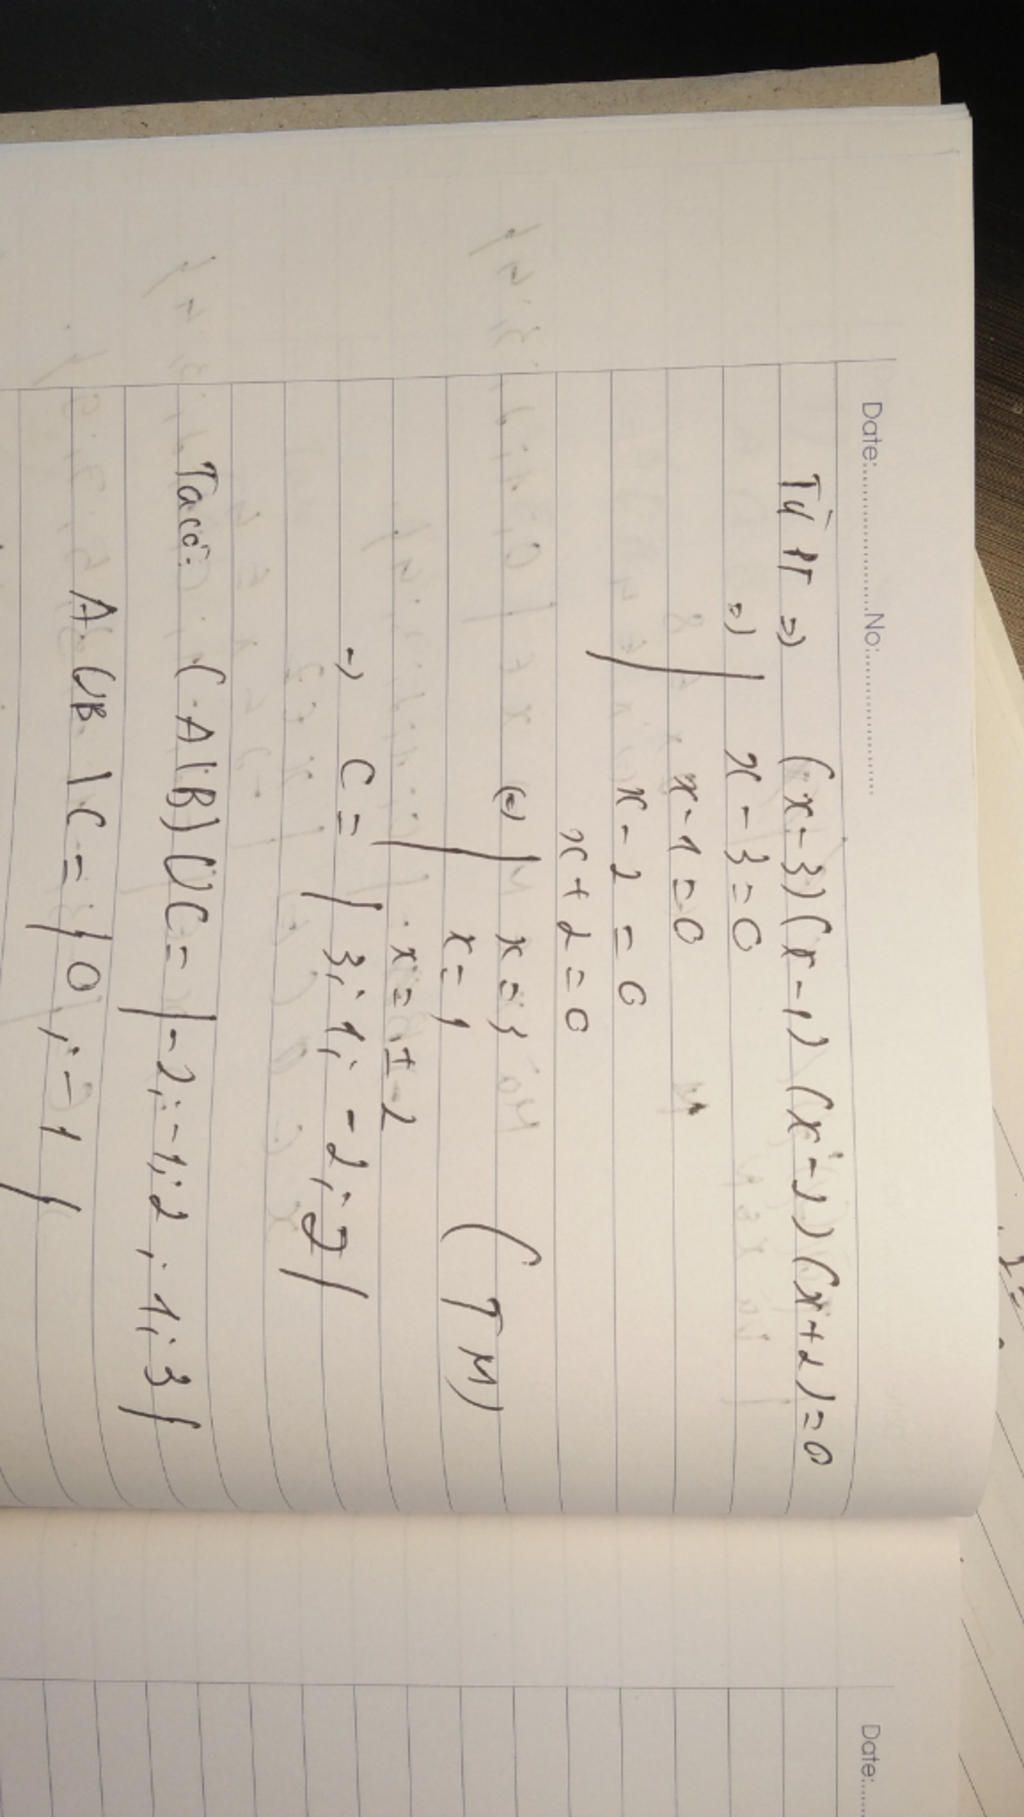 Date:..............No:..............
Từ PT => (x-3)(x-1)(x-2)(x+2)=0
=> | x-3=0
x-1=0
x-2=0
x+2=0
(=) | x=3
x=1 (TM)
x=±2
=> C=| 3; 1; -2; 2|
Ta có: (A\B)UC=|-2;-1;2;1;3|
A UB \C=|0;-1|
Date:.....